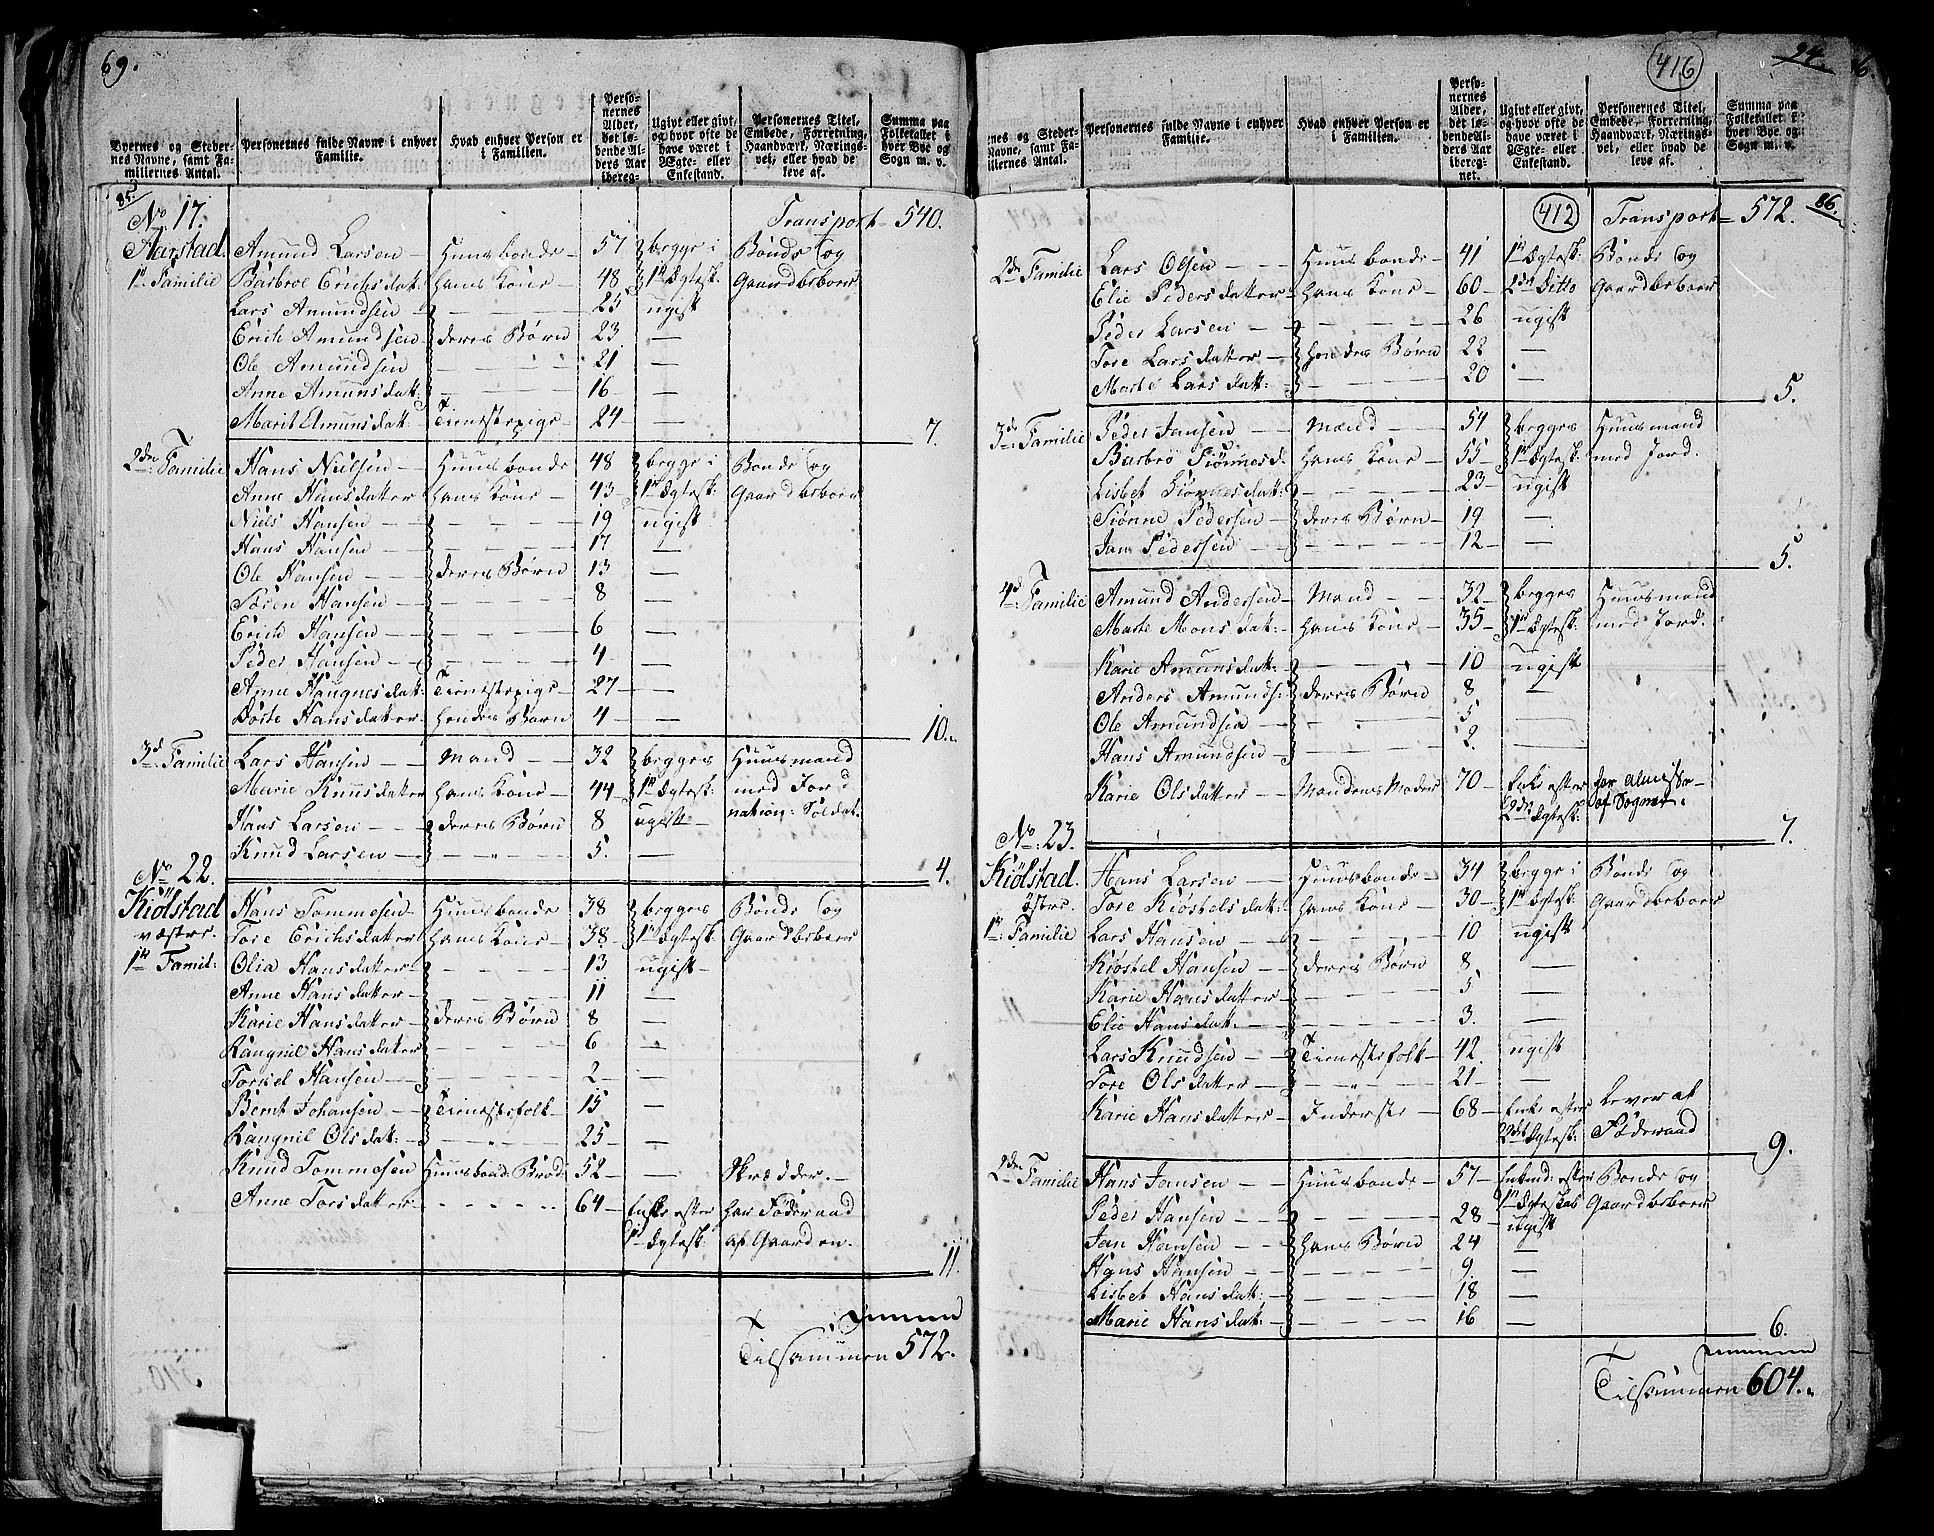 69.
Byernes og Steder-
nes Navne, samt Fa-
miliernes Antal.
Personernes fulde Navne i enhver
Familie.
Hvad enhver Person er
i Familien.
Perso-
nernes
Alder,
det lø-
bende Al-
ders Aar
ibereg-
Ugivt eller givt,
og hvor ofte de
have været i
Ægte- eller
Enkestand.
Personernes Titel,
Embede, Forretning,
Haandværk, Nærings-
vei, eller hvad de
leve af.
Summa paa
Folketallet i
hver Bye og
Sogn m. v.
85
No. 17. Transport 540.
Aarstad. Amund Larsen Huusbonde 57 begge i Bonde og
1te Familie Barbroe Erichsdatt: hans Kone 48 1te Ægtesk: Gaardbeboer
Lars Amundsen 25 ugift
Erich Amundsen deres Børn 23
Ole Amundsen 21
Anne Amunsdatt: 16
Marit Amunsdatt: Tienestepige 24
7.
2den Familie Hans Nielsen Huusbonde 48 begge i Bonde og
Anne Hansdatter hans Kone 43 1te Ægtesk: Gaardbeboer
Niels Hansen 19 ugift
Hans Hansen 17
Ole Hansen deres Børn 13
Søren Hansen 8
Erich Hansen 6
Peder Hansen 4
Anne Haugnesdatt: Tienestepige 27
Dorte Hansdatter hendes Barn 4
10.
3d Familie Lars Hansen Mand 32 begges Huusmand
Marie Knusdatter hans Kone 44 1te Ægtesk: med Jord
Hans Larsen deres Børn 8 ugift nation: Soldat.
Knud Larsen 5.
4.
No 22.
Kiølstad Hans Tommesen Huusbonde 38 begges Bonde og
væstre. Tore Erichsdatter hans Kone 38 1te Ægtesk: Gaardbeboer
1te Famil: Olia Hansdatter 13 ugift
Anne Hansdatter 11
Karie Hansdatter deres Børn 8
Rangnil Hansdatter 6
Torsel Hansen 2
Bernt Johansen Tienestefolk 15
Rangnil Olsdatt: 25
Knud Tommesen Huusbond: Broder 52 Skrædder.
Anne Torsdatter 64 Enke efter har Føderaad
1te Ægtesk: af Gaarden.
11.
Summa
Tilsammen 572.
94
416
86
nes og Steder-
Navne, samt Fa-
miliernes Antal.
Personernes fulde Navne i enhver
Familie.
Hvad enhver Person er
i Familien.
Perso-
nernes
Alder,
det lø-
bende Al-
ders Aar
ibereg-
net.
Ugivt eller givt,
og hvor ofte de
have været i
Ægte- eller
Enkestand.
Personernes Titel,
Embede, Forretning,
Haandværk, Nærings-
vei, eller hvad de
leve af.
Summa paa
Folketallet i
hver Bye og
Sogn m. v.
412 Transport 572.
2den Familie Lars Olsen Huusbonde 41 1te Ægtesk: Bonde og
Elie Pedersdatter hans Kone 60 2den Ditto Gaardbeboer
Peder Larsen 26 ugift
Tore Larsdatter hendes Børn 22
Marte Larsdatt: 20
5.
3d Familie Peder Jansen Mand 54 begges Huusmand
Barbro Siønnesd. hans Kone 55 1te Ægtesk: med Jord.
Lisbet Siønnesdatt: 23 ugift
Siønne Pedersen deres Børn 19
Jan Pedersen 12
5.
4d Familie Amund Andersen Mand 32 begges Huusmand
Marte Monsdatt: hans Kone 35 1te Ægtesk: med Jord.
Karie Amunsdatt: 10 ugift
Anders Amunds: deres Børn 8
Ole Amundsen 5
Hans Amundsen 2.
Karie Olsdatter Mandens Moder 70 Enke efter faar almisse
2den Ægtesk: af Sognet.
7.
No. 23.
Kiølstad. Hans Larsen Huusbonde 34 begge i Bonde og
østre. Tore Kiøstelsdatt: hans Kone 30 1te Ægtesk: Gaardbeboer
1te: Familie Lars Hansen 10 ugift
Kiøstel Hansen deres Børn 8
Karie Hansdatter 5
Elie Hansdatt: 3.
Lars Knudsen Tienestefolk 42 ugift
Tore Olsdatter 21
Karie Hansdatter Inderste 68 Enke efter lever af
2det Ægtesk: Føderaad
9.
2den Familie Hans Jansen Huusbonde 57 Enkmd: efter Bonde og
Peder Hansen 28 1te Ægteskab Gaardbeboer
ugift
Jan Hansen hans Børn 24
Hans Hansen 9.
Lisbet Hansdatt: 18
Marie Hansdatt: 16
6.
Summa
Tilsammen 604.